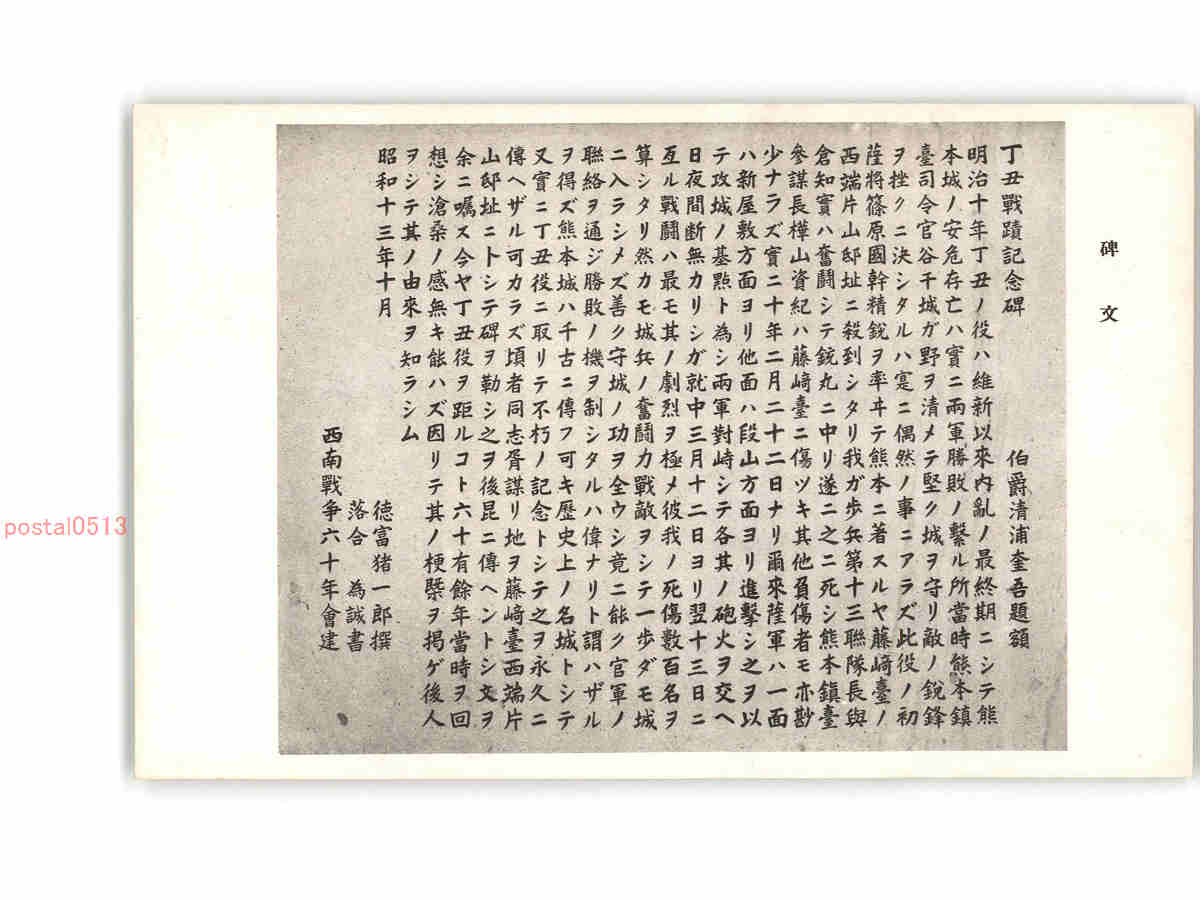 碑文
丁丑戰蹟記念碑
伯爵清浦奎吾題額
明治十年丁丑ノ役ハ維新以來内亂ノ最終期ニシテ熊
本城ノ安危存亡ハ實ニ兩軍勝敗ノ繫ル所當時熊本鎭
臺司令官谷干城ガ野ヲ清メテ堅ク城ヲ守リ敵ノ銳鋒
ヲ挫クニ決シタルハ寔ニ偶然ノ事ニアラズ此役ノ初
薩將篠原國幹精銳ヲ率ヰテ熊本ニ著スルヤ藤﨑臺ノ
西端片山邸址ニ殺到シタリ我ガ歩兵第十三聯隊長與
倉知實ハ奮鬪シテ銃丸ニ中リ遂ニ之ニ死シ熊本鎭臺
參謀長樺山資紀ハ藤﨑臺ニ傷ツキ其他負傷者モ亦尠
少ナラズ實ニ十年二月二十二日ナリ爾來薩軍ハ一面
ハ新屋敷方面ヨリ他面ハ段山方面ヨリ進擊シ之ヲ以
テ攻城ノ基點ト為シ兩軍對峙シテ各其ノ砲火ヲ交ヘ
日夜間断無カリシガ就中三月十二日ヨリ翌十三日ニ
亙ル戰鬪ハ最モ其ノ劇烈ヲ極メ彼我ノ死傷數百名ヲ
算シタリ然カモ城兵ノ奮鬪力戰敵ヲシテ一歩ダモ城
ニ入ラシメズ善ク守城ノ功ヲ全ウシ竟ニ能ク官軍ノ
聯絡ヲ通ジ勝敗ノ機ヲ制シタルハ偉ナリト謂ハザル
ヲ得ズ熊本城ハ千古ニ傳フ可キ歷史上ノ名城トシテ
又實ニ丁丑役ニ取リテ不朽ノ記念トシテ之ヲ永久ニ
傳ヘザル可カラズ頃者同志胥謀リ地ヲ藤﨑臺西端片
山邸址ニトシテ碑ヲ勒シ之ヲ後昆ニ傳ヘントシ文ヲ
余ニ囑ス今ヤ丁丑役ヲ距ルコト六十有餘年當時ヲ回
想シ滄桑ノ感無キ能ハズ因リテ其ノ梗槩ヲ掲ゲ後人
ヲシテ其ノ由來ヲ知ラシム
昭和十三年十月
徳富猪一郎撰
落合為誠書
西南戰争六十年會建
postal0513